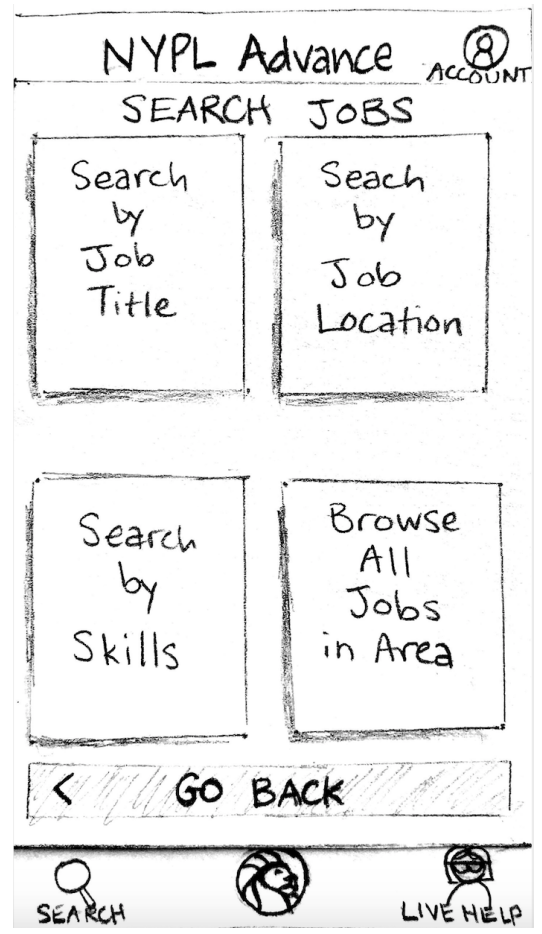 NYPL Advance
ACCOUNT
SEARCH JOBS
Search
by
Job
Title
Seach
by
Job
Location
Search
by
Skills
Browse
All
Jobs
in Area
< GO BACK
SEARCH
LIVE HELP